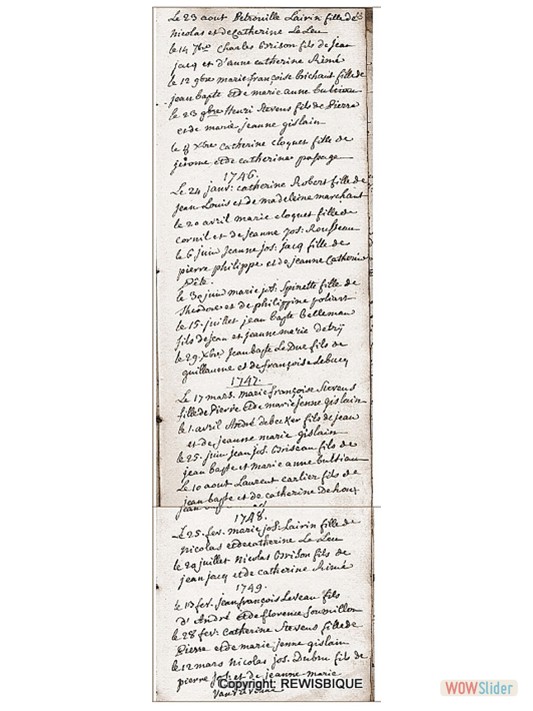 Le 23 aout Petronille Lairin fille de
Nicolas et de Catherine Le Leu
le 14 7bre Charles Brison fils de jean
jacq et d'anne catherine Rimé
le 12 9bre marie françoise brichaut fille de
jean bapte et de marie anne
le 23 9bre Henri Stevens fils de Pierre
et de marie jeanne gislain
le 8 Xbre catherine cloquet fille de
jérome et de catherine passage
1746.
Le 24 janv: catherine Robert fille de
jean Louis et de madeleine marchant
le 20 avril marie cloquet fille de
cornil et de jeanne jos: Rousseau
le 6 juin jeanne jos: jacq fille de
pierre philippe et de jeanne Catherine
le 30 juin marie jos: Spinette fille de
theodore et de philippine
le 15 juillet jean bapte Belleman
fils de jean et jeanne marie detrij
le 29 Xbre jean bapte Le Duc fils de
guillaume et de françoise Lebucq
1747.
Le 17 mars. marie françoise Stevens
fille de Pierre et de marie jenne gislain
le 1. avril André debecker fils de jean
et de jeanne marie gislain
le 25. juin jean jos. Briseau fils de
jean bapte et marie anne bultiau
Le 10 aout Laurent carlier fils de
jean bapte et de catherine Dehoux
1748.
Le 25. fev. marie jos: Lairin fille de
nicolas et de catherine Le Leu
le 29 juillet Nicolas Brison fils de
jean jacq et de catherine Rimé
1749.
le 13 fev. jean françois Leveau fils
d'André et de florence
le 28 fev: Catherine Stevens fille de
Pierre et de marie jenne gislain
le 12 mars Nicolas jos. Dubru fils de
pierre jos: et de jeanne marie
Copyright: REWISBIQUE
WOWSlider